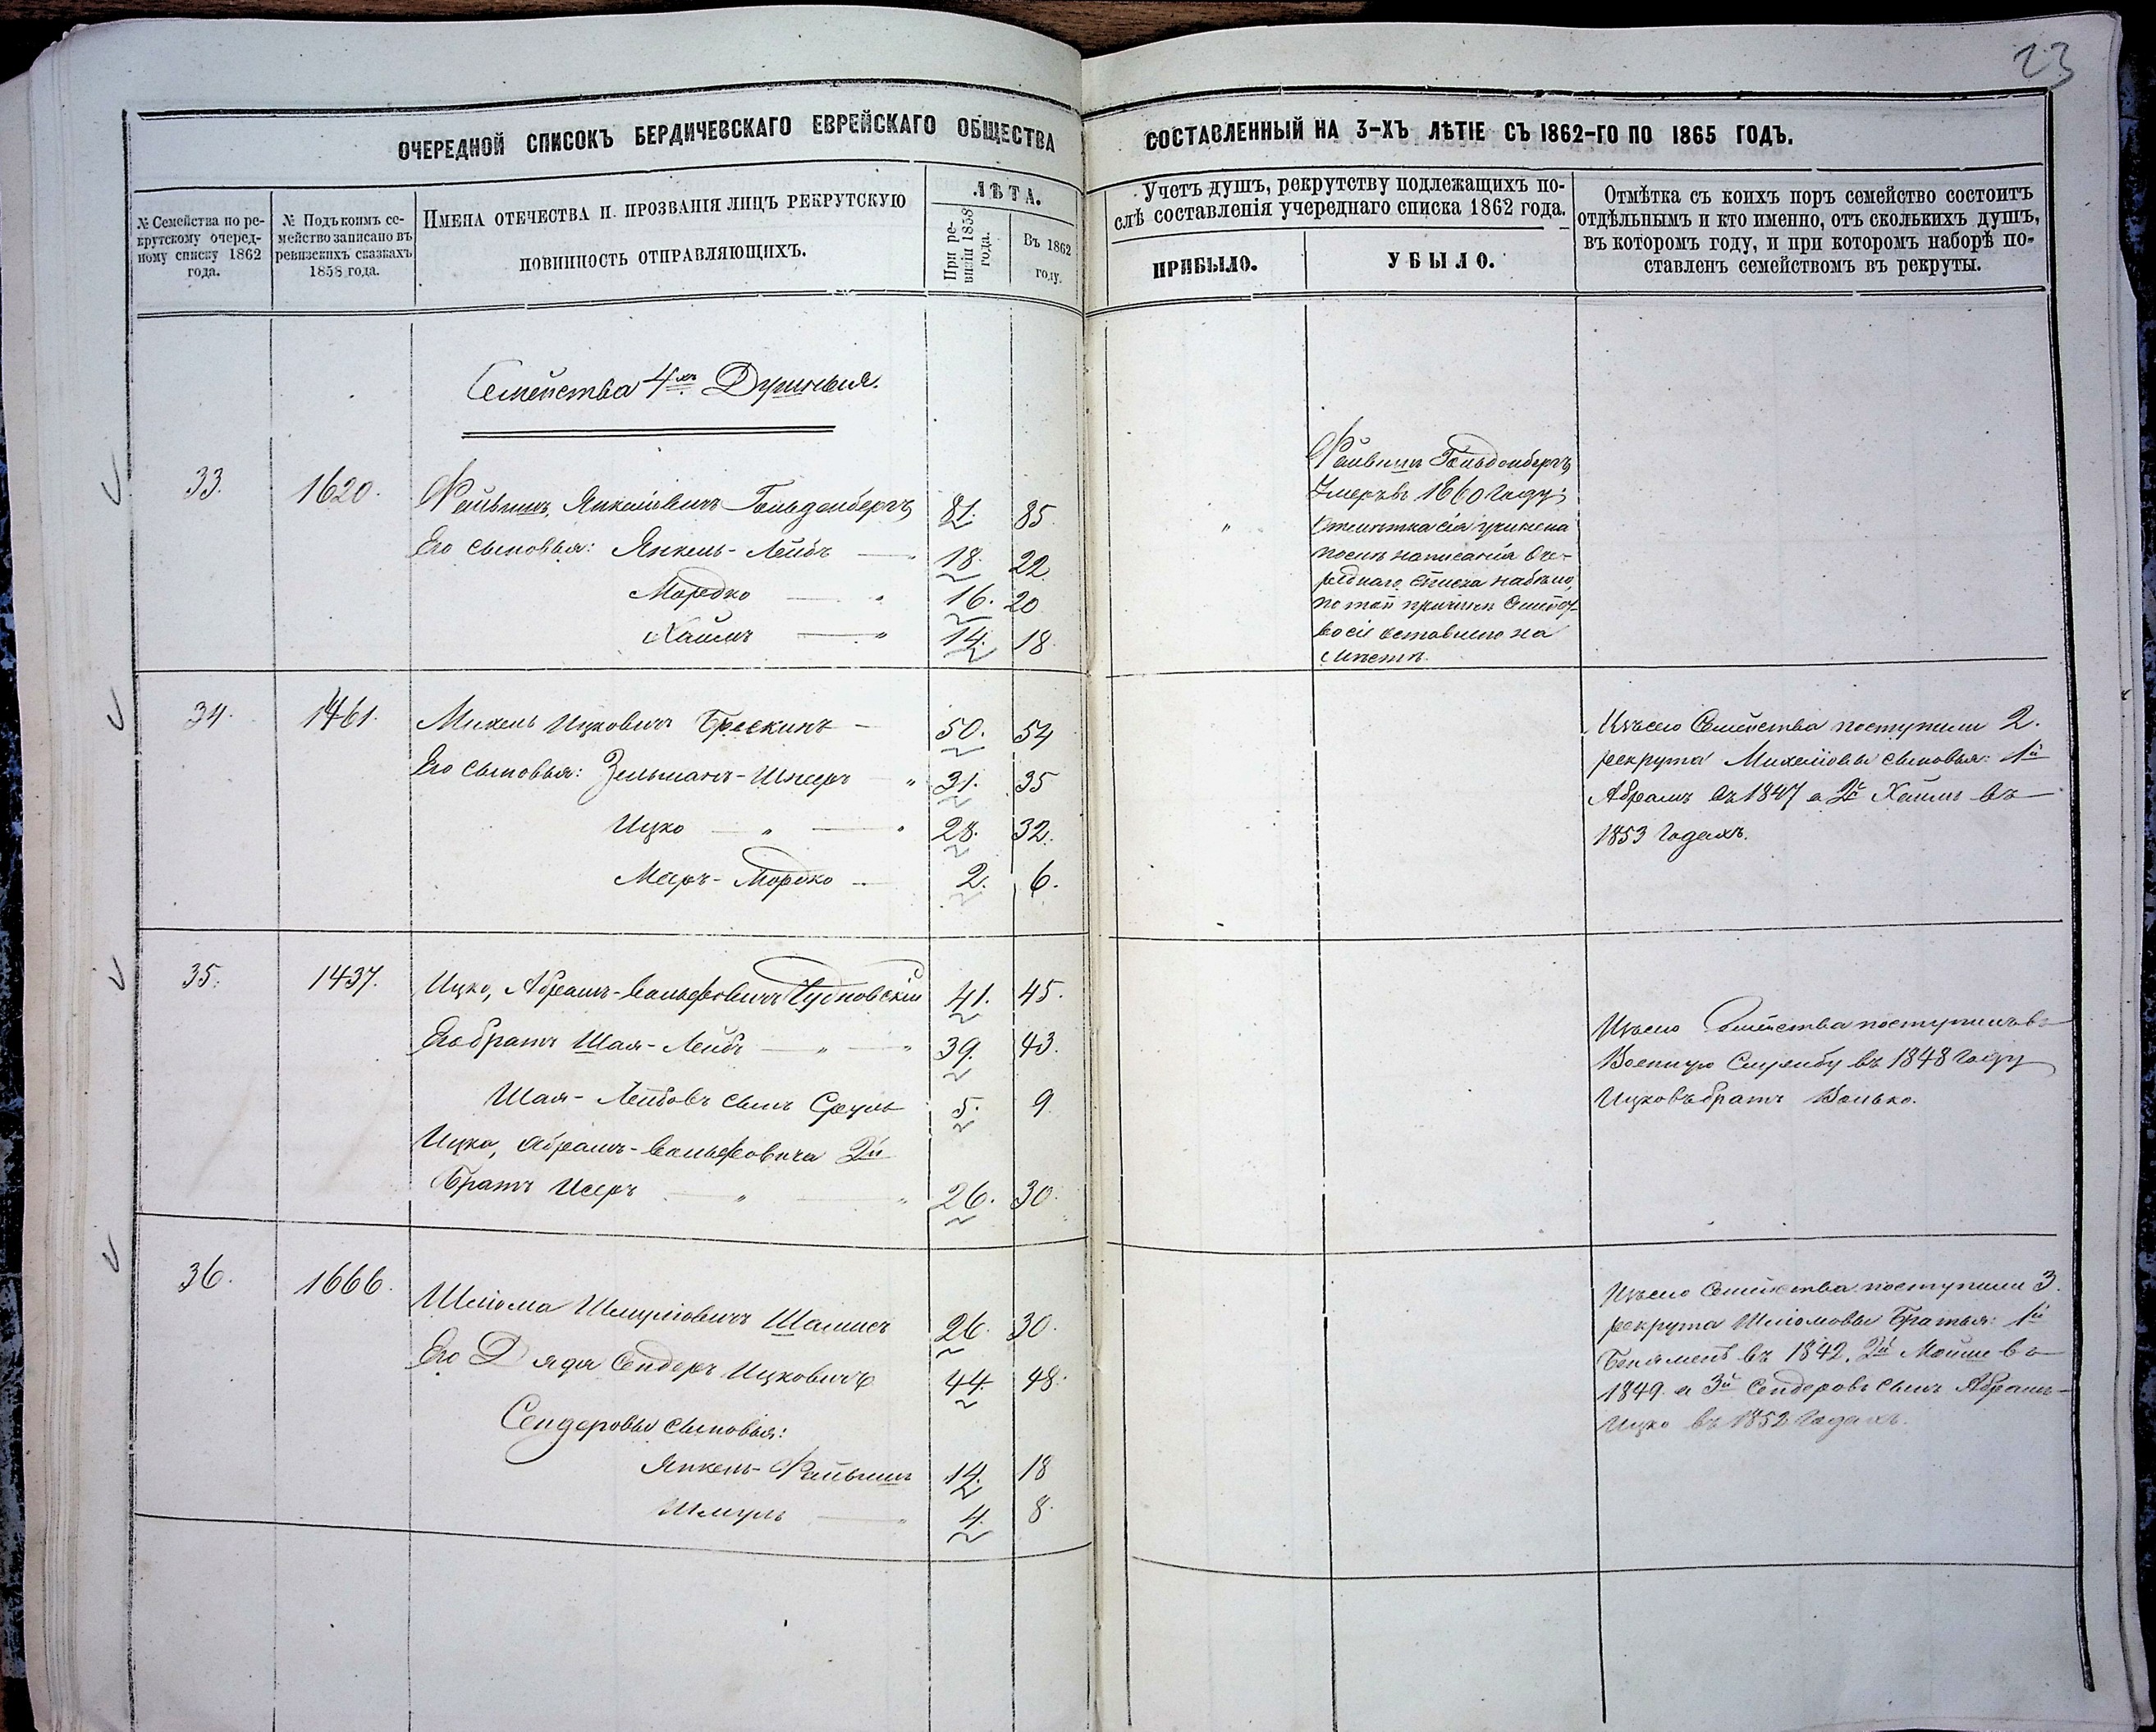 23
ОЧЕРЕДНОЙ СПИСОКЪ БЕРДИЧЕВСКАГО ЕВРЕЙСКАГО ОБЩЕСТВА
СОСТАВЛЕННЫЙ НА 3-ХЪ ЛѢТІЕ СЪ 1862-ГО ПО 1865 ГОДЪ.
№ Семейства по ре-
крутскому очеред-
ному списку 1862
года.
№ Подъ коимъ се-
мейство записано въ
ревизскихъ сказкахъ
1858 года.
ИМЕНА ОТЕЧЕСТВА И ПРОЗВАНІЯ ЛИЦЪ РЕКРУТСКУЮ
ПОВИННОСТЬ ОТПРАВЛЯЮЩИХЪ.
ЛѢТА.
При ре-
визіи 1858
года.
Въ 1862
году.
Учетъ душъ, рекрутству подлежащихъ по-
слѣ составленія учереднаго списка 1862 года.
ПРИБЫЛО.
УБЫЛО.
Отмѣтка съ коихъ поръ семейство состоитъ
отдѣльнымъ и кто именно, отъ сколькихъ душъ,
въ которомъ году, и при которомъ наборѣ по-
ставленъ семействомъ въ рекруты.
Семейства 4хъ Душныя.
33. 1620. Файвишъ Янкелевичъ Гольденбергъ 81. 85.
Его сыновья: Янкель-Лейбъ 18. 22.
Мордко 16. 20
Хаимъ 14. 18.
Файвишъ Гольденбергъ
Умеръ въ 1860 Году;
Отмѣтка сія учинена
послѣ написанія Оче-
реднаго Списка набѣло,
по той причинѣ
оставлено на
Мѣстѣ.
34. 1461. Михель Ицковичъ Брескинъ 50. 54
Его сыновья: Зельманъ-Шнееръ 31. 35
Ицко 28. 32.
Меръ-Мордко 2. 6.
Изъ сего Семейства поступили 2.
рекрута Михелевы сыновья: 1й
Абрамъ въ 1847 а 2й Хаимъ въ
1853 Годахъ.
35. 1437. Ицко, Абрамъ-Вольфовичъ Чудновскій 41. 45.
Его братъ Шая-Лейбъ 39. 43.
Шая-Лейбовъ сынъ Сруль 5. 9
Ицко, Абрамъ-Вольфовича 2й
Братъ Исеръ 26. 30.
Изъ сего Семейства поступилъ въ
Военную Службу въ 1848 Году
Ицковъ братъ Волько.
36. 1666. Шлиома Шмулiовичъ 26. 30.
Его Дядя Сендеръ Ицковичъ 44. 48.
Сендеровы сыновья:
Янкель-Файвишъ 14. 18
Шмуль 4. 8.
Изъ сего Семейства поступили 3.
рекрута Шлиомовы Братья: 1й
Бенямень въ 1842. 2й Мошко въ
1849. а 3й Сендеровъ сынъ Абрамъ-
Ицко въ 1852 Годахъ.